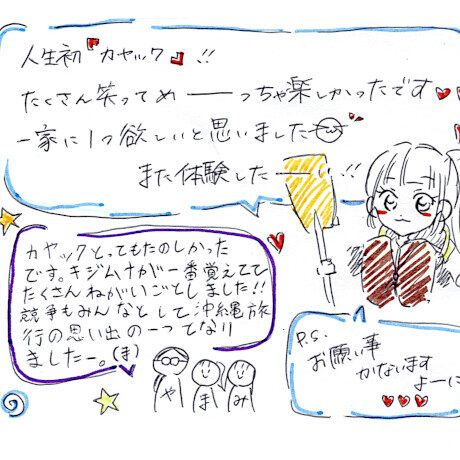 人生初『カヤック』!!
たくさん笑ってめーーっちゃ楽しかったです
一家に1つ欲しいと思いました
また体験したーーい!!
カヤックとってもたのしかった
です。キジムナガが一番覚えてて
たくさんねがいごとしました!!
競争もみんなとして沖縄旅
行の思い出の一つてなり
ましたー。(ま)
や
ま
み
P.S.
お願い事
かないます
よーに